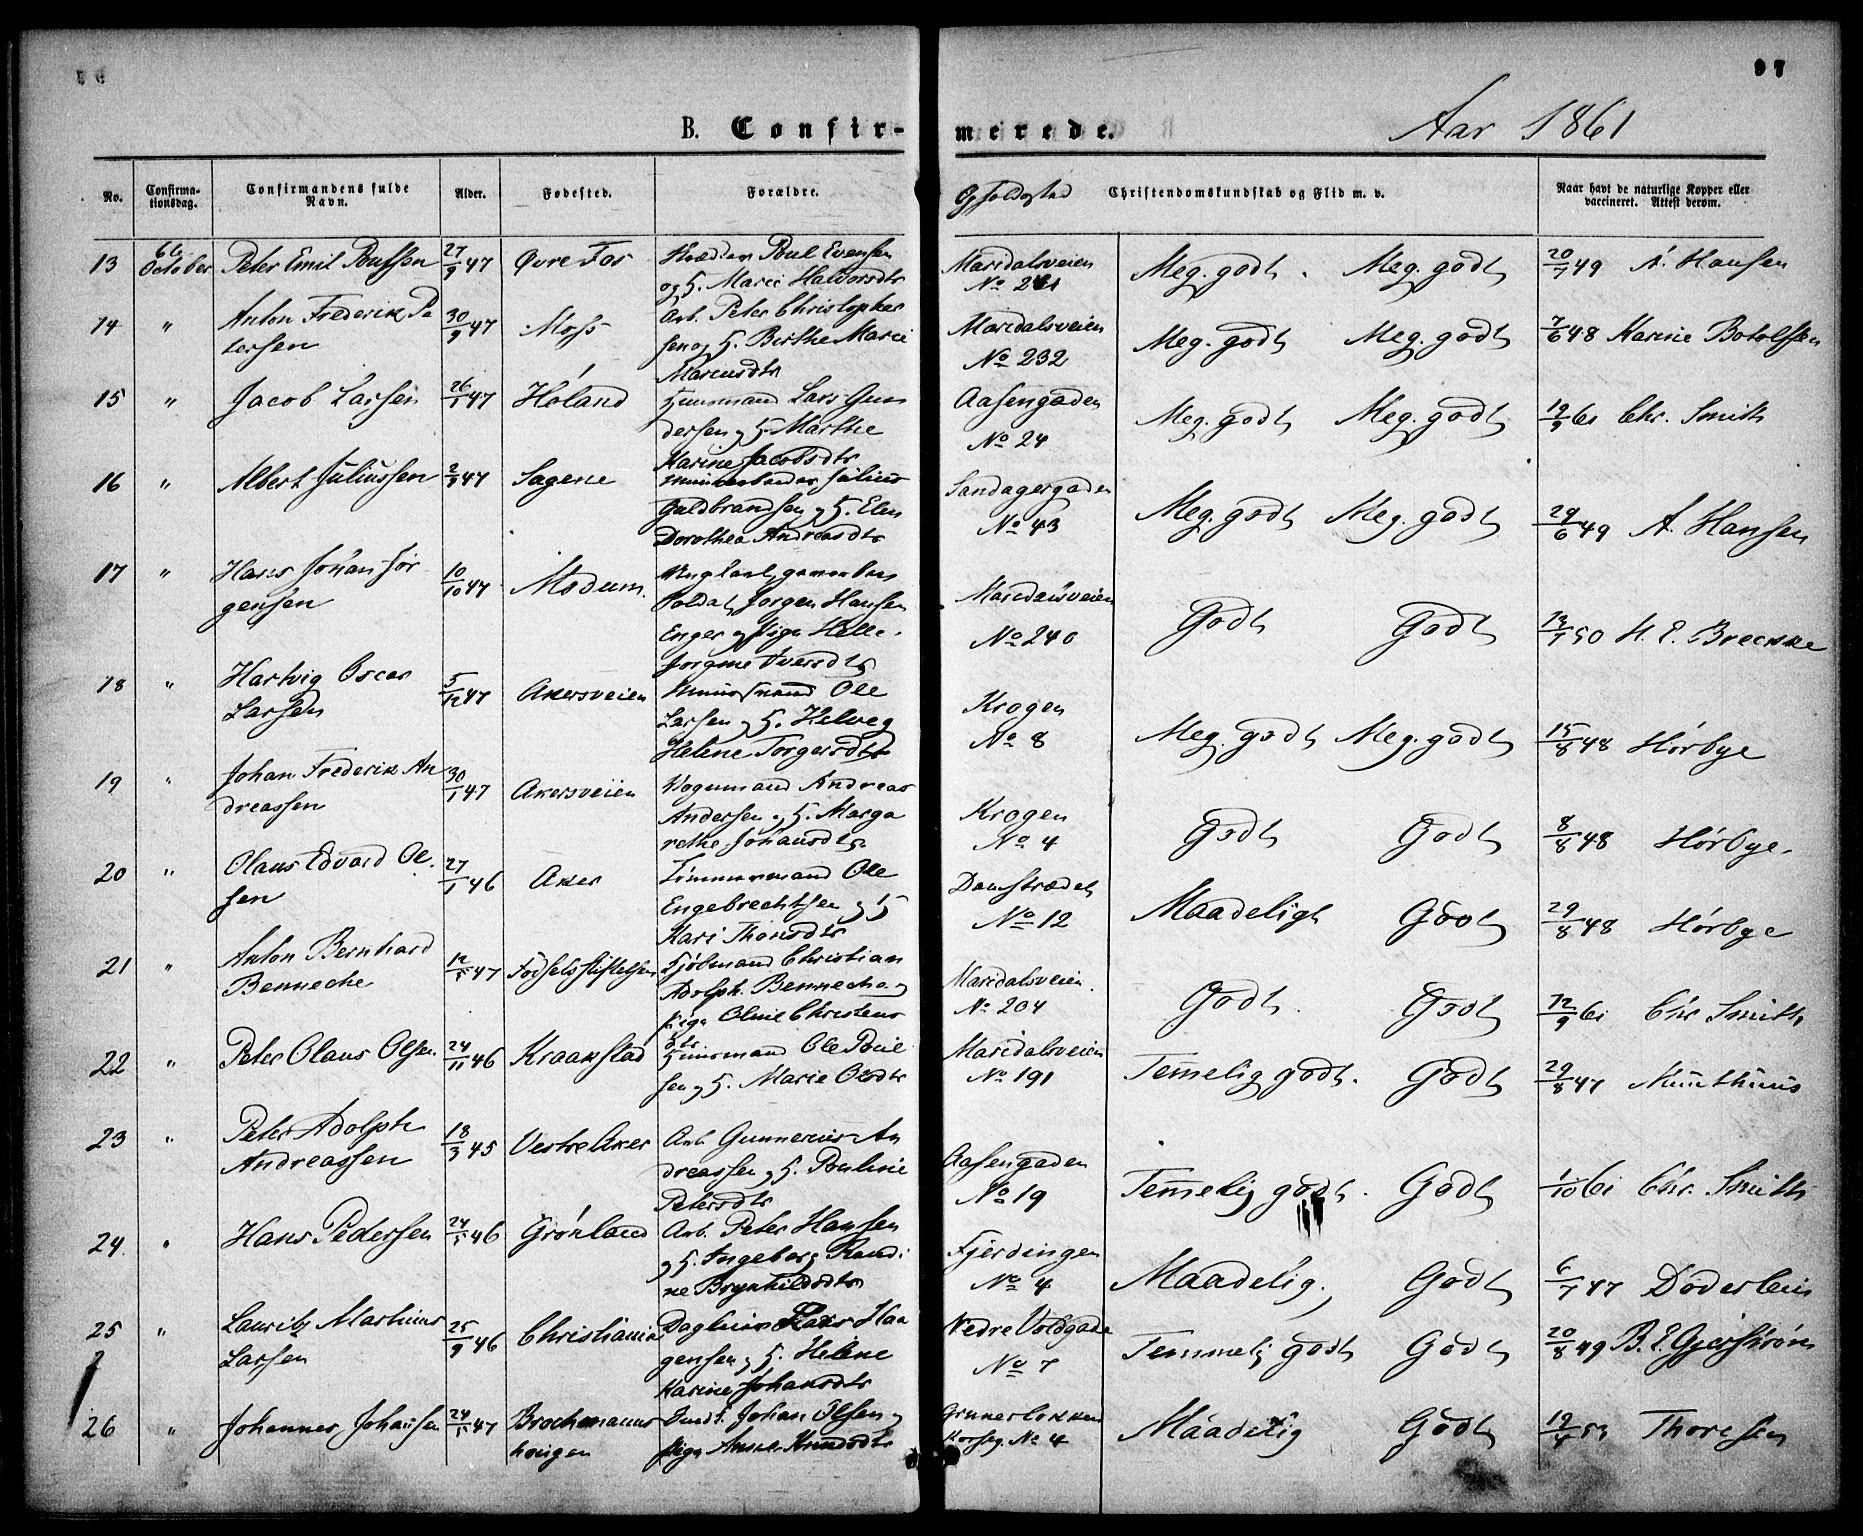 97
B. Confirmerede.
Aar 1861
No.
Confirmationsdag.
Confirmandens fulde Navn.
Alder.
Fødested.
Forældre.
Opholdssted
Christendomskundskab og Flid m. v.
Naar havt de naturlige Kopper eller vaccineret. Attest derom.
13 6te October Peter Emil Poulssen 27/9 47 Øvre Fos Poul Evensen og H. Marie Haldorsdtr Maridalsveien No Meg. godt. Meg. godt 20/7 49 A. Hansen
14 " Anton Frederik Petersen 30/9 47 Moss Arb. Peter Christophersen og H. Birthe Marie Mariusdtr Maridalsveien No 232 Meg. godt Meg. godt 7/6 48 Karine Botolfsen
15 " Jacob Larsen 26/1 47 Høland Huusmand Lars Gundersen og H. Marthe Karine Jacobsdtr Aasengaden No 24 Meg. godt Meg. godt 19/9 61 Chr. Smith
16 " Albert Juliussen 47 Sagene Julius Guldbrandsen og H. Elen Dorothea Andreasdtr Sandagergaden No 43 Meg. godt Meg. godt 29/6 49 A. Hansen
17 " Hans Johan Jørgensen 10/10 47 Modum. Soldat Jørgen Hansen Enger og Pige Helle Jorgine Iversdtr Maridalsveien No 240 Godt Godt 50
18 " Hartvig Oscar Larsen 5/12 47 Akersveien Muursvend Ole Larsen og H. Helveg Helene Torgersdtr Krogen No 8 Meg. godt Meg. godt 15/8 48 Hørbye
19 " Johan Frederik Andreassen 30/1 47 Akersveien Vognmand Andreas Andersen og H. Margarethe Johansdtr Krogen No 4 Godt Godt 8/8 48 Hørbye.
20 " Olaus Edvard Olsen 27/1 46 Aker Tømmermand Ole Engebrechtsen og H Kari Thorsdtr Damstrædet No 12 Maadeligt Godt 29/8 48 Hørbye
21 " Anton Bernhard Benneche 47 Fødselsstiftelsen Christian Adolph Benneche og Pige Oline Christensdtr Maridalsveien No 204 Godt. Godt 12/9 61 Chr Smith
22 " Peter Olaus Olsen 24/11 46 Kraakstad Huusmand Ole Poulsen og H. Marie Olsdtr Maridalsveien No 191 Temmelig godt. Godt 29/8 47 Munthinus
23 " Peter Adolph Andreassen 18/3 45 Vestre Aker Arb Gunnerius Andreassen og H. Pouline Petersdtr Aasengaden No 19 Temmelig godt. Godt 1/10 61 Chr. Smith
24. " Hans Pedersen 24/5 46 Grønland Arb. Peter Hansen og H. Ingeborg Randine Brynhildsdtr Fjerdingen No 4 Maadelig. Godt 6/7 47 Døderlein
25 " Lauritz Martinus Larsen 25/9 46 Christiania Lars Haagensen og H. Helene Karine Johansdtr Nedre Voldgade No 7 Temmelig godt Godt 20/8 49 B. E. Gjerstrøm
26 " Johannes Johansen 24/5 47 Brochmannshougen Johan Olsen og Pige Anne Knudsdtr Grunerløkken Korsg. No 4 Maadelig Godt 19/4 53 Thoresen